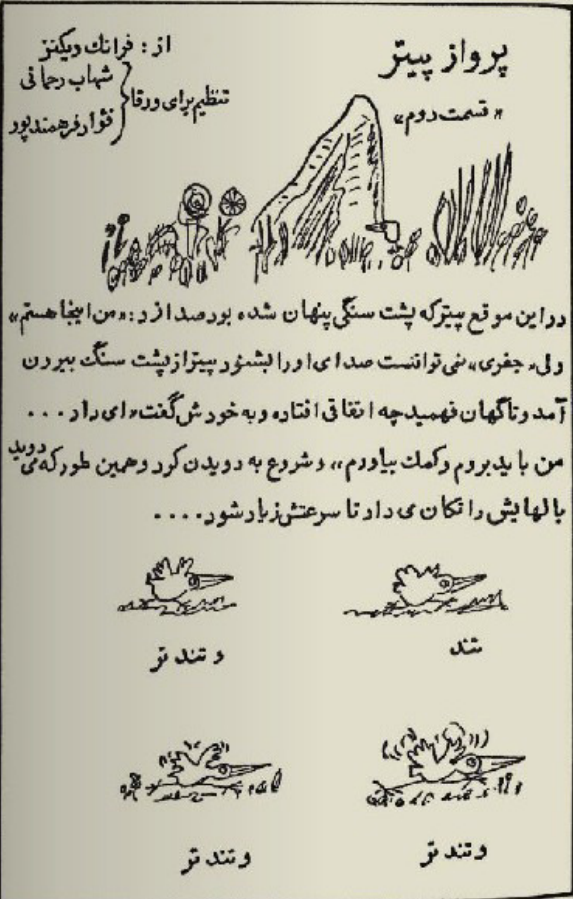 پرواز پیتر
«قسمت دوم»
از: فرانک دیکنز
تنظیم برای ورقا
شهاب رحمانی
فؤاد فرهمندپور
در این موقع پیتر که پشت سنگی پنهان شده بود صدا زد: «من اینجا هستم»
ولی «جفری» نمی توانست صدای او را بشنود پیتر از پشت سنگ بیرون
آمد و ناگهان فهمید چه اتفاقی افتاده و به خودش گفت «ای داد...
من باید بروم و کمک بیاورم» و شروع به دویدن کرد و همین طور که می دوید
بالهایش را تکان می داد تا سرعتش زیاد شود....
تند
و تند تر
و تند تر
و تند تر